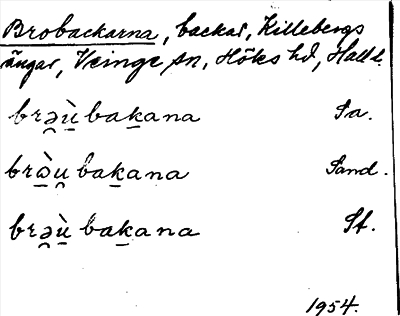 Brobackarna, backar, Killebergs
ängar, Veinge sn, Höks hd, Hall l.
brə̯ù̱baḵana Sa.
brə̱̀u̯baḵana Sand.
brə̯ù̱baḵana St.
1954.